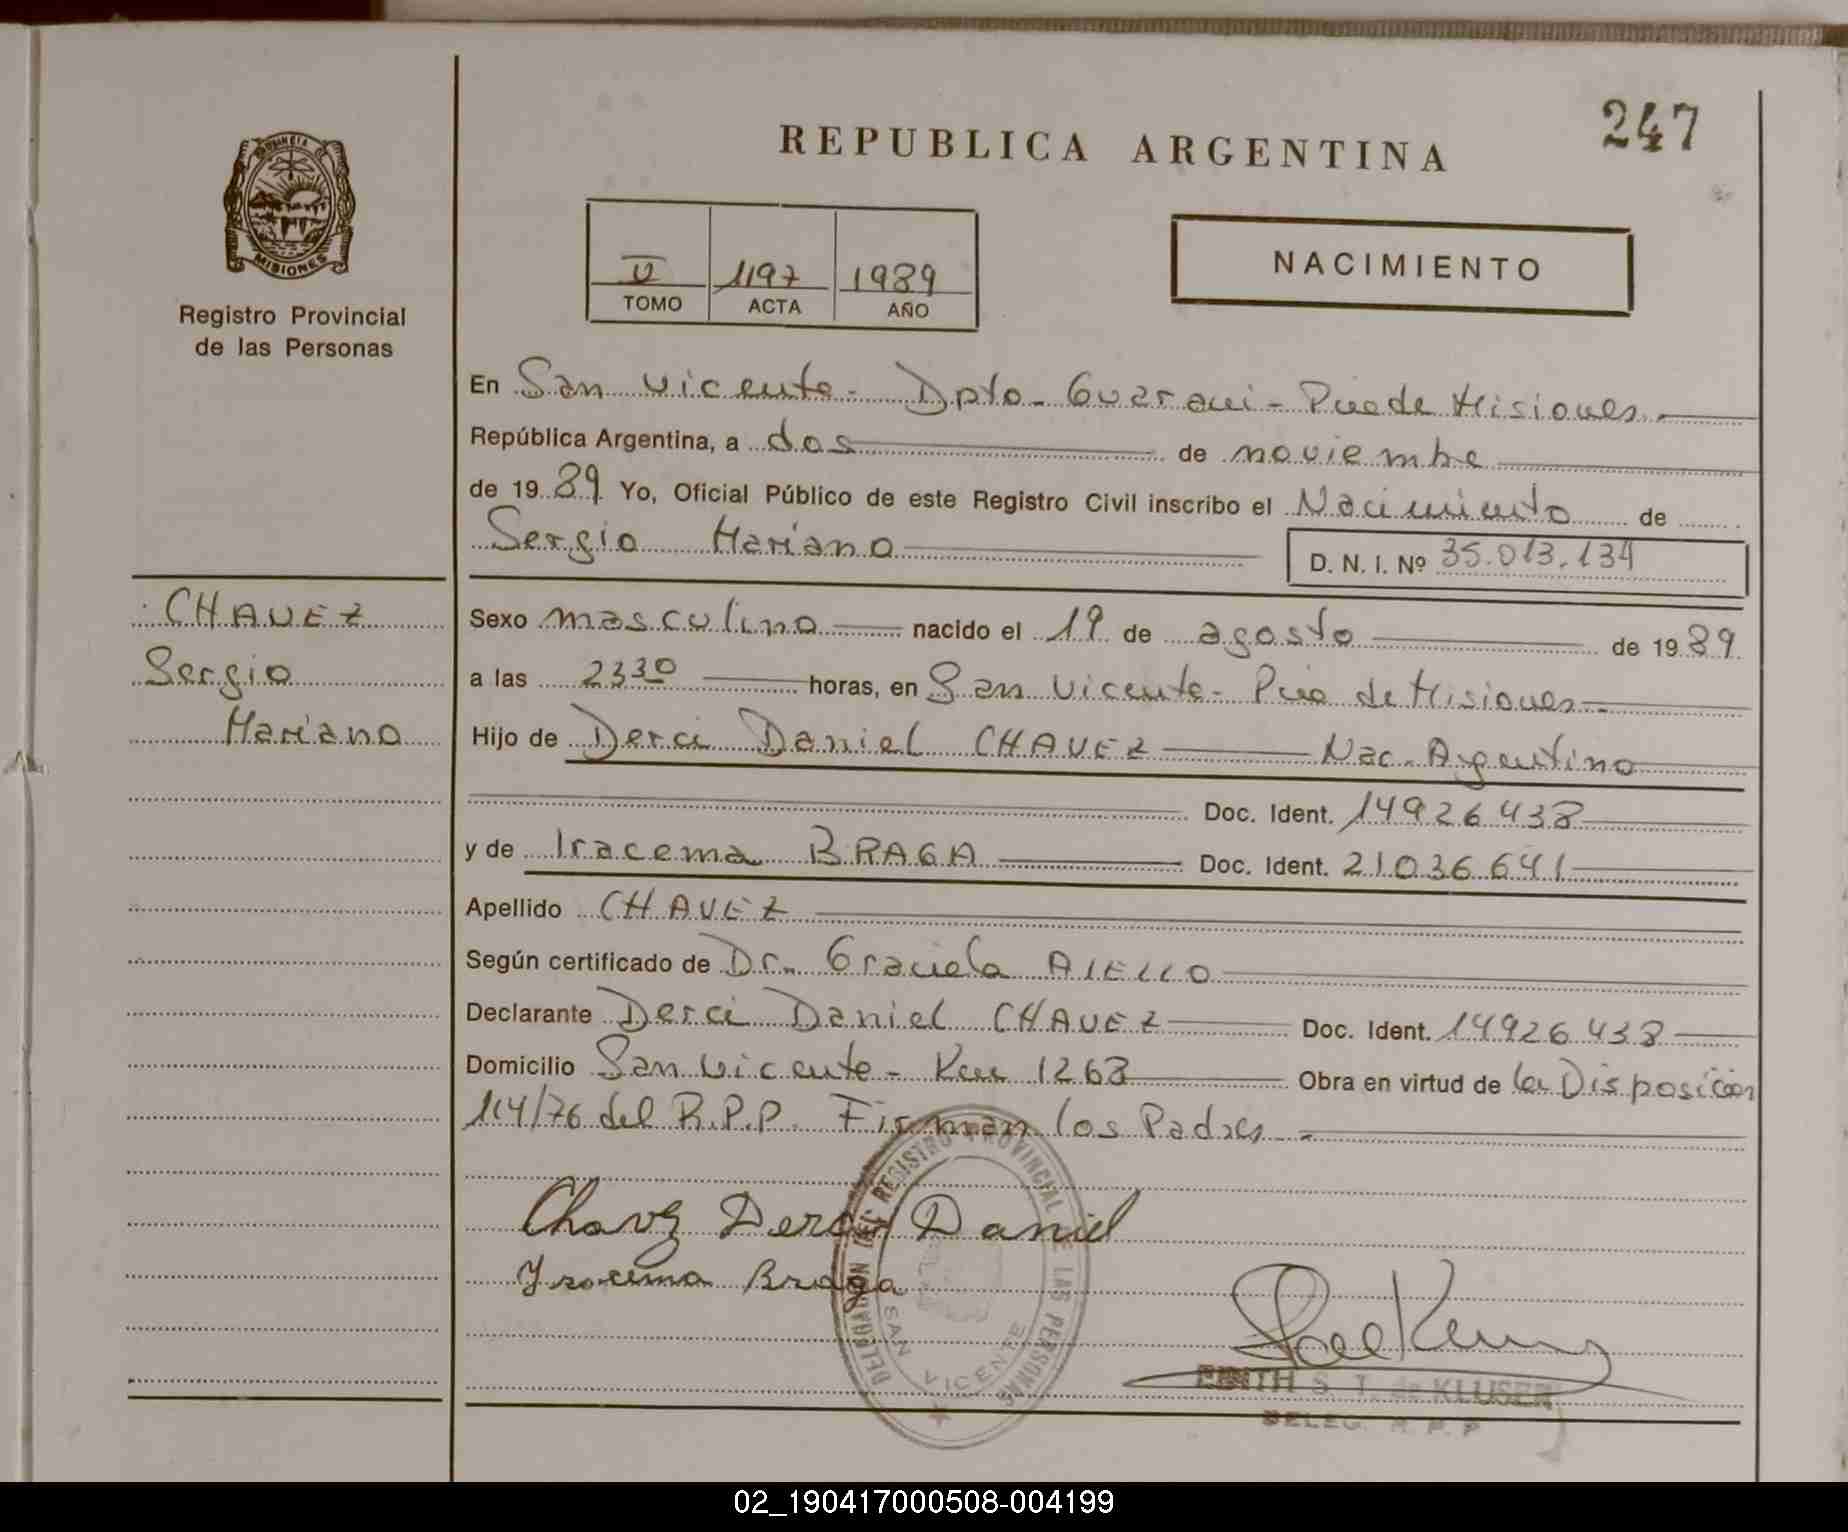 247
REPUBLICA ARGENTINA
PROVINCIA DE
MISIONES
Registro Provincial
de las Personas
V 1197 1989
TOMO ACTA AÑO
NACIMIENTO
En San Vicente - Dpto - Guarani - Pcia de Misiones -
República Argentina, a dos de noviembre
de 1989 Yo, Oficial Público de este Registro Civil inscribo el Nacimiento de
Sergio Mariano D. N. I. Nº 35.013.134
CHAVEZ
Sergio
Mariano
Sexo masculino nacido el 19 de agosto de 1989
a las 23 30 horas, en San Vicente - Pcia de Misiones -
Hijo de Derci Daniel CHAVEZ Nac. Argentino
Doc. Ident. 14926438
y de Iracema BRAGA Doc. Ident. 21036641
Apellido CHAVEZ
Según certificado de Dr. Graciela AIELLO
Declarante Derci Daniel CHAVEZ Doc. Ident. 14926438
Domicilio San Vicente - Km 1268 Obra en virtud de la Disposición
114/76 del R.P.P. Firman los Padres -
Chavez Derci Daniel
Iracema Braga
DELEGACION DEL REGISTRO PROVINCIAL DE LAS PERSONAS
SAN VICENTE
EDITH S. T. de KLUSER
DELEG. R. P. P
02_190417000508-004199